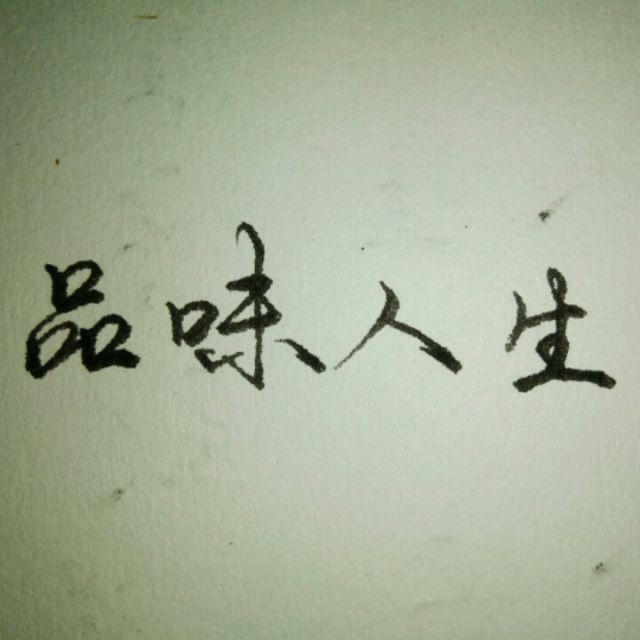 品味人生